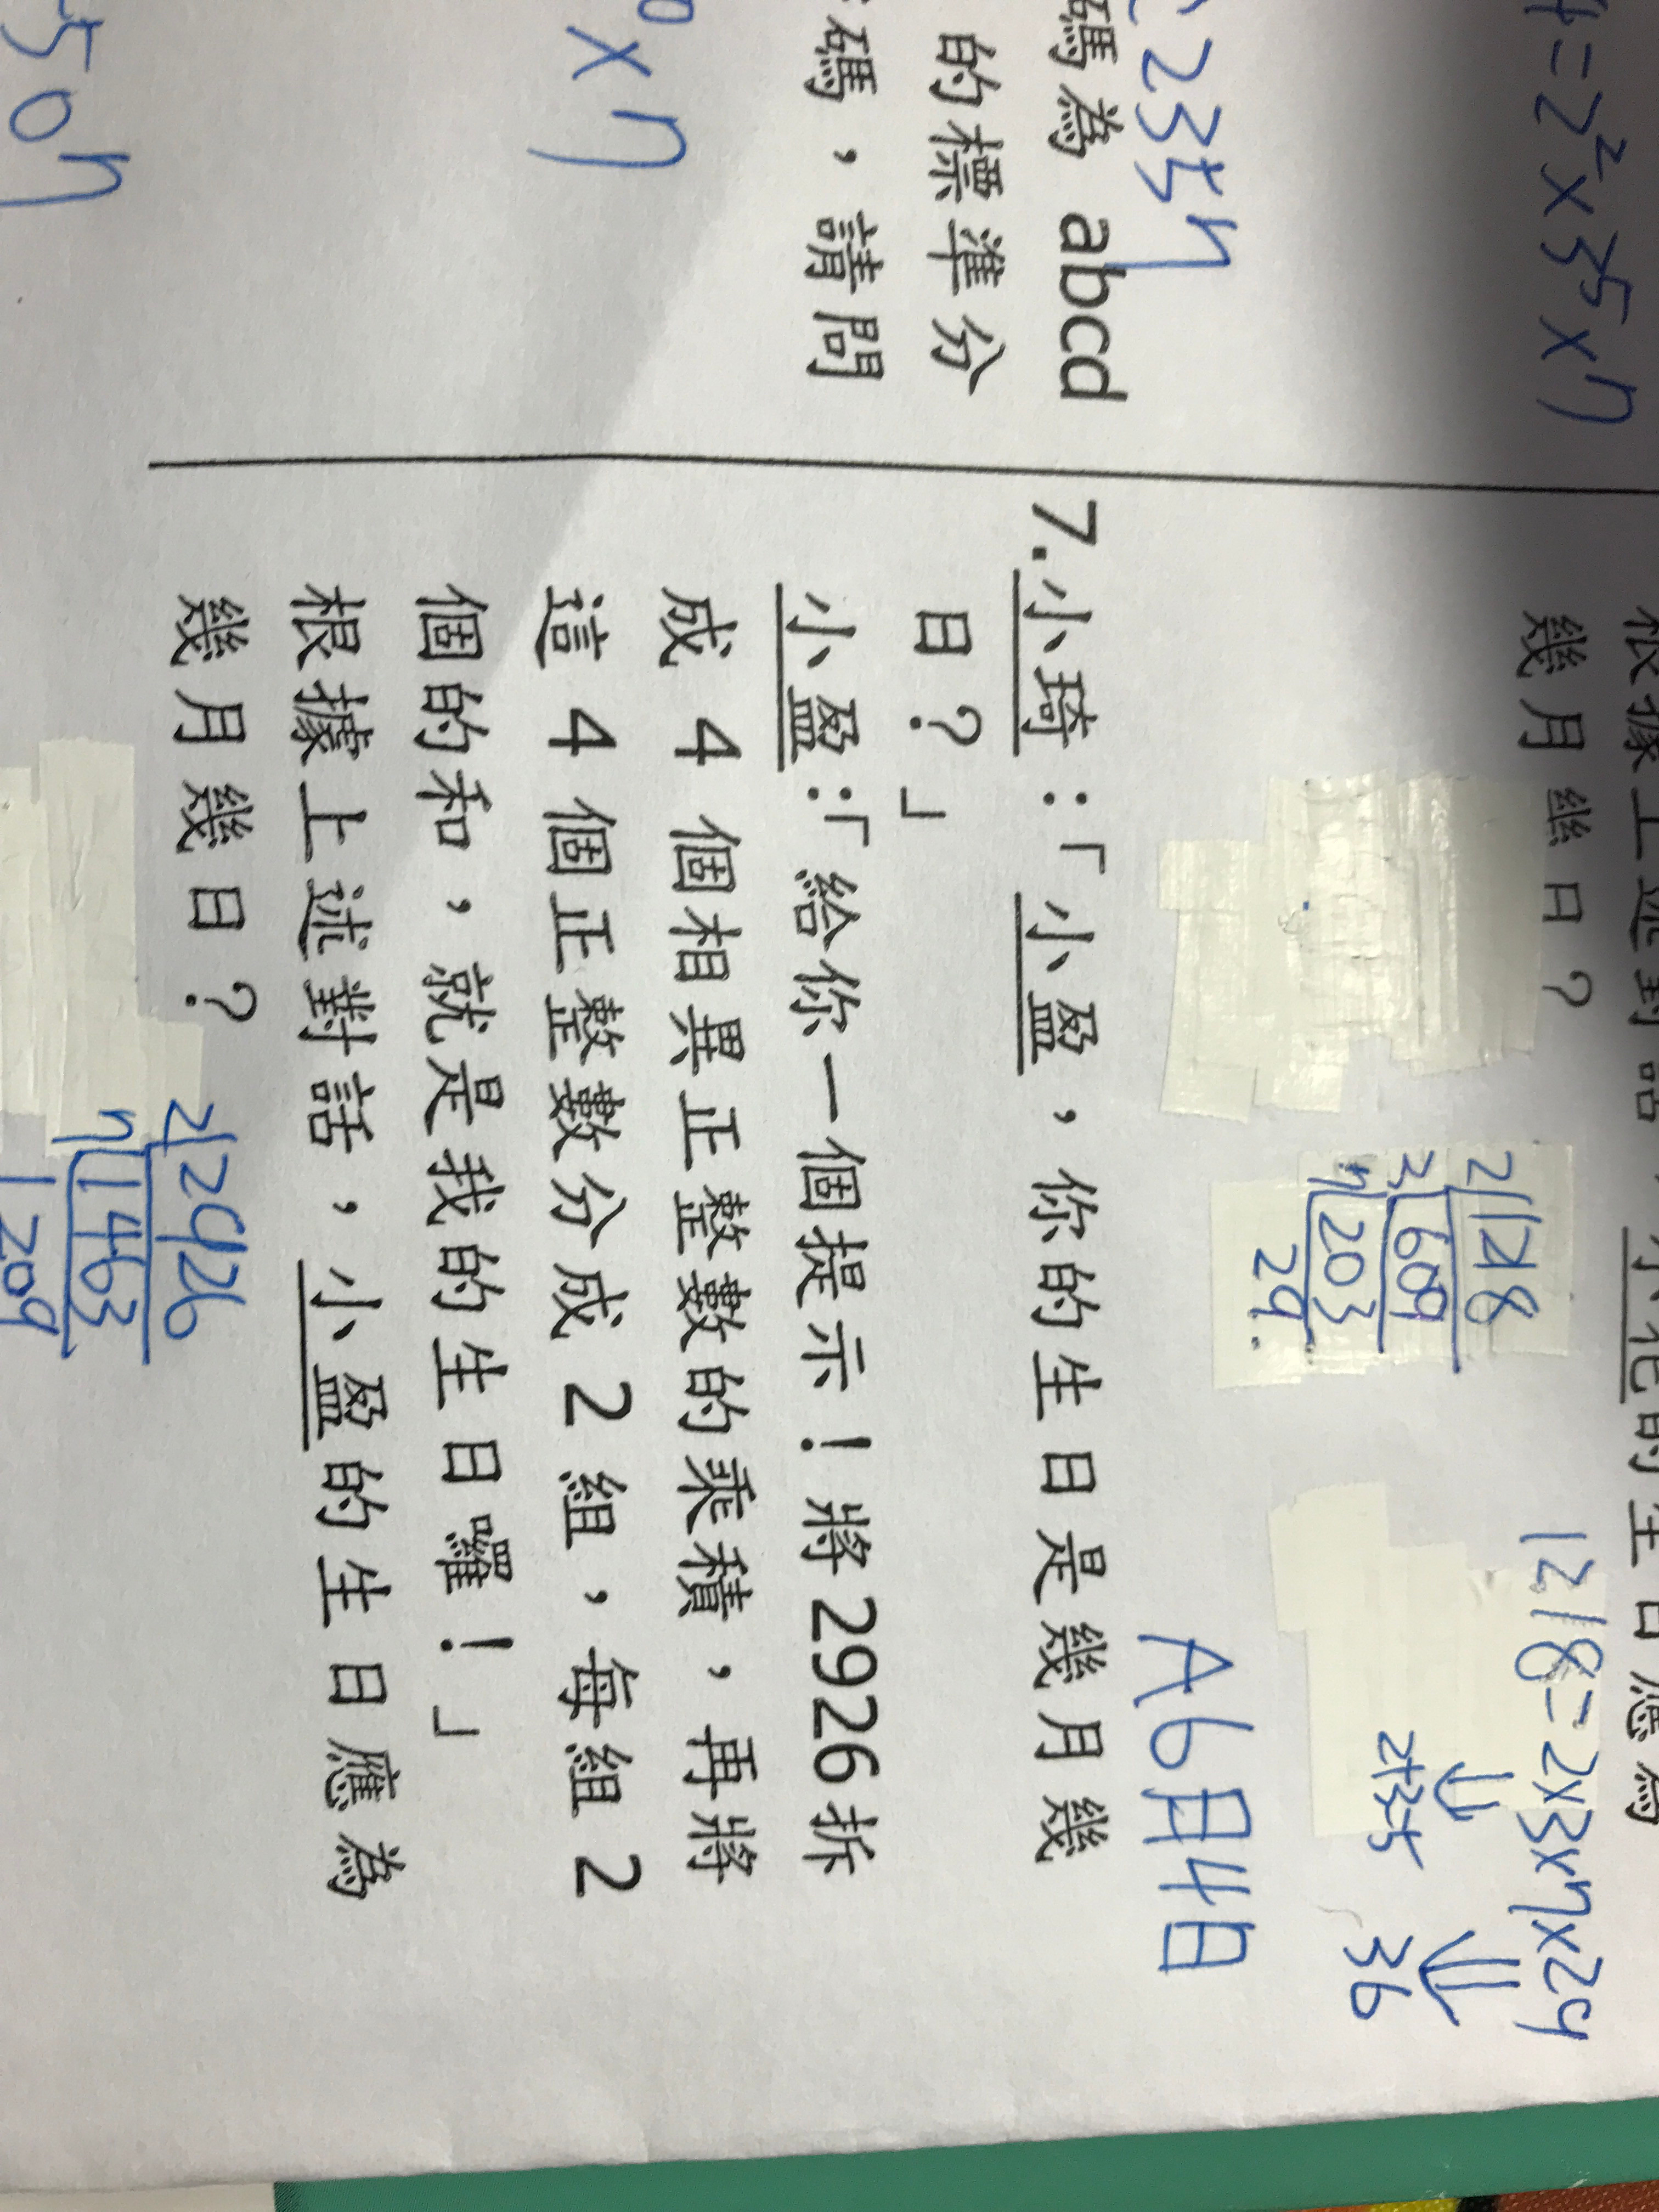 4=2²×3⁵×7
2357
碼為 abcd
的標準分
碼，請問
×7
507
幾月幾日？
2|1218
3|609
7|203
29.
1218=2×3×7×29
36
A6月4日
7.小琦：「小盈，你的生日是幾月幾
日？」
小盈：「給你一個提示！將2926拆
成 4 個相異正整數的乘積，再將
這 4 個正整數分成 2 組，每組 2
個的和，就是我的生日囉！」
根據上述對話，小盈的生日應為
幾月幾日？
2|2926
7|1463
209